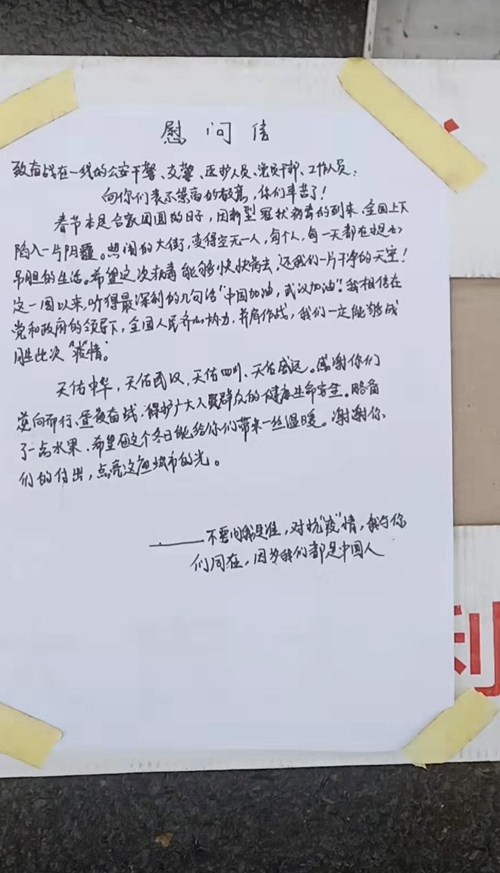 慰问信
致奋战在一线的公安干警、交警、医护人员、党员干部、工作人员:
向你们表示崇高的敬意,你们辛苦了!
春节本是合家团圆的日子,因新型冠状病毒的到来,全国上下
陷入一片阴霾。热闹的大街,变得空无一人,每个人,每一天都在提心
吊胆的生活。希望这次病毒能够快快离去,还我们一片干净的天空!
这一周以来,听得最深刻的几句话“中国加油,武汉加油”。我相信在
党和政府的领导下,全国人民齐心协力,并肩作战,我们一定能够战
胜此次“疫”情。
天佑中华,天佑武汉,天佑四川、天佑威远。感谢你们
逆向而行、昼夜奋战、保护广大人民群众的健康生命安全。略备
了一点水果,希望在这个冬日能给你们带来一丝温暖。谢谢你
们的付出,点亮这座城市的光。
——不要问我是谁,对抗“疫”情,我与你
们同在,因为我们都是中国人
利